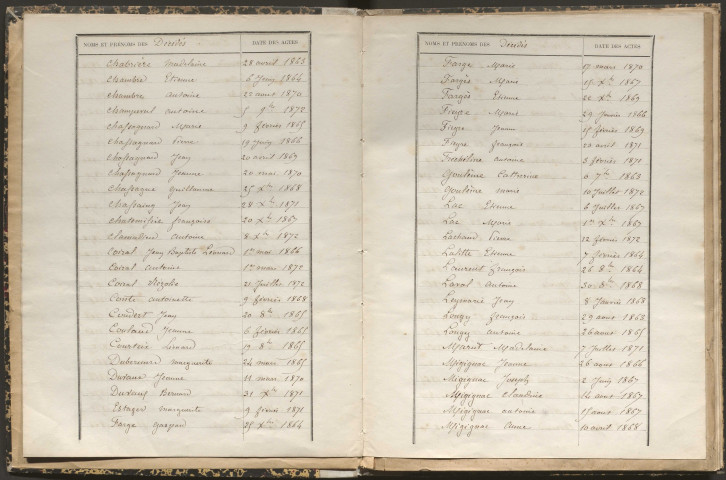 NOMS ET PRÉNOMS DES Décédés DATE DES ACTES
Chabrière Magdeleine 28 avril 1863
Chambre Etienne 6 Juin 1864
Chambre antoine 22 aout 1870
Champeval antoine 5 9bre 1872
Chassagnard Marie 9 février 1865
Chassagnard Pierre 19 Juin 1866
Chassagnard Jean 20 avril 1869
Chassagnard Jeanne 20 mai 1870
Chassagne Guillaume 25 Xbre 1868
Chassaing Jean 28 Xbre 1871
Chatemissie françoise 20 Xbre 1867
antoine 8 Xbre 1872
Coiral Jean Baptiste Léonard 1er mai 1866
Coiral antoine 1er mars 1872
Coiral Rozalie 21 Juillet 1872
Comte antoinette 9 février 1868
Coudert Jean 20 8bre 1865
Coulaud Jeanne 6 février 1865
Courteix Léonard 19 8bre 1865
marguerite 24 mars 1865
Jeanne 11 mars 1870
Bernard 31 Xbre 1871
Estager marguerite 9 février 1871
Farge Gaspar 25 Xbre 1864
NOMS ET PRÉNOMS DES Décédés DATE DES ACTES
Farge Marie 17 mars 1870
Fargès Marie 15 Xbre 1867
Fargès Etienne 22 Xbre 1869
Marie 29 Janvier 1866
Jeanne 15 février 1869
Fayre françois 20 avril 1871
antoine 3 février 1871
Goulème Catherine 6 7bre 1863
Goulème Marie 10 Juillet 1872
Lac Etienne 6 Juillet 1867
Lac Marie 1er Xbre 1867
Pierre 12 février 1872
Lalitte Etienne 7 février 1864
Laurent françois 26 8bre 1864
Laval Antoine 30 8bre 1868
Leymarie Jean 8 Janvier 1868
Longy françois 29 aout 1863
Longy antoine 26 aout 1865
Madelaine 7 Juillet 1871
Migignac Jeanne 28 aout 1866
Migignac Joseph 2 Juin 1867
Migignac Claudine 14 aout 1867
Migignac antoine 15 aout 1867
Migignac Anne 10 avril 1868